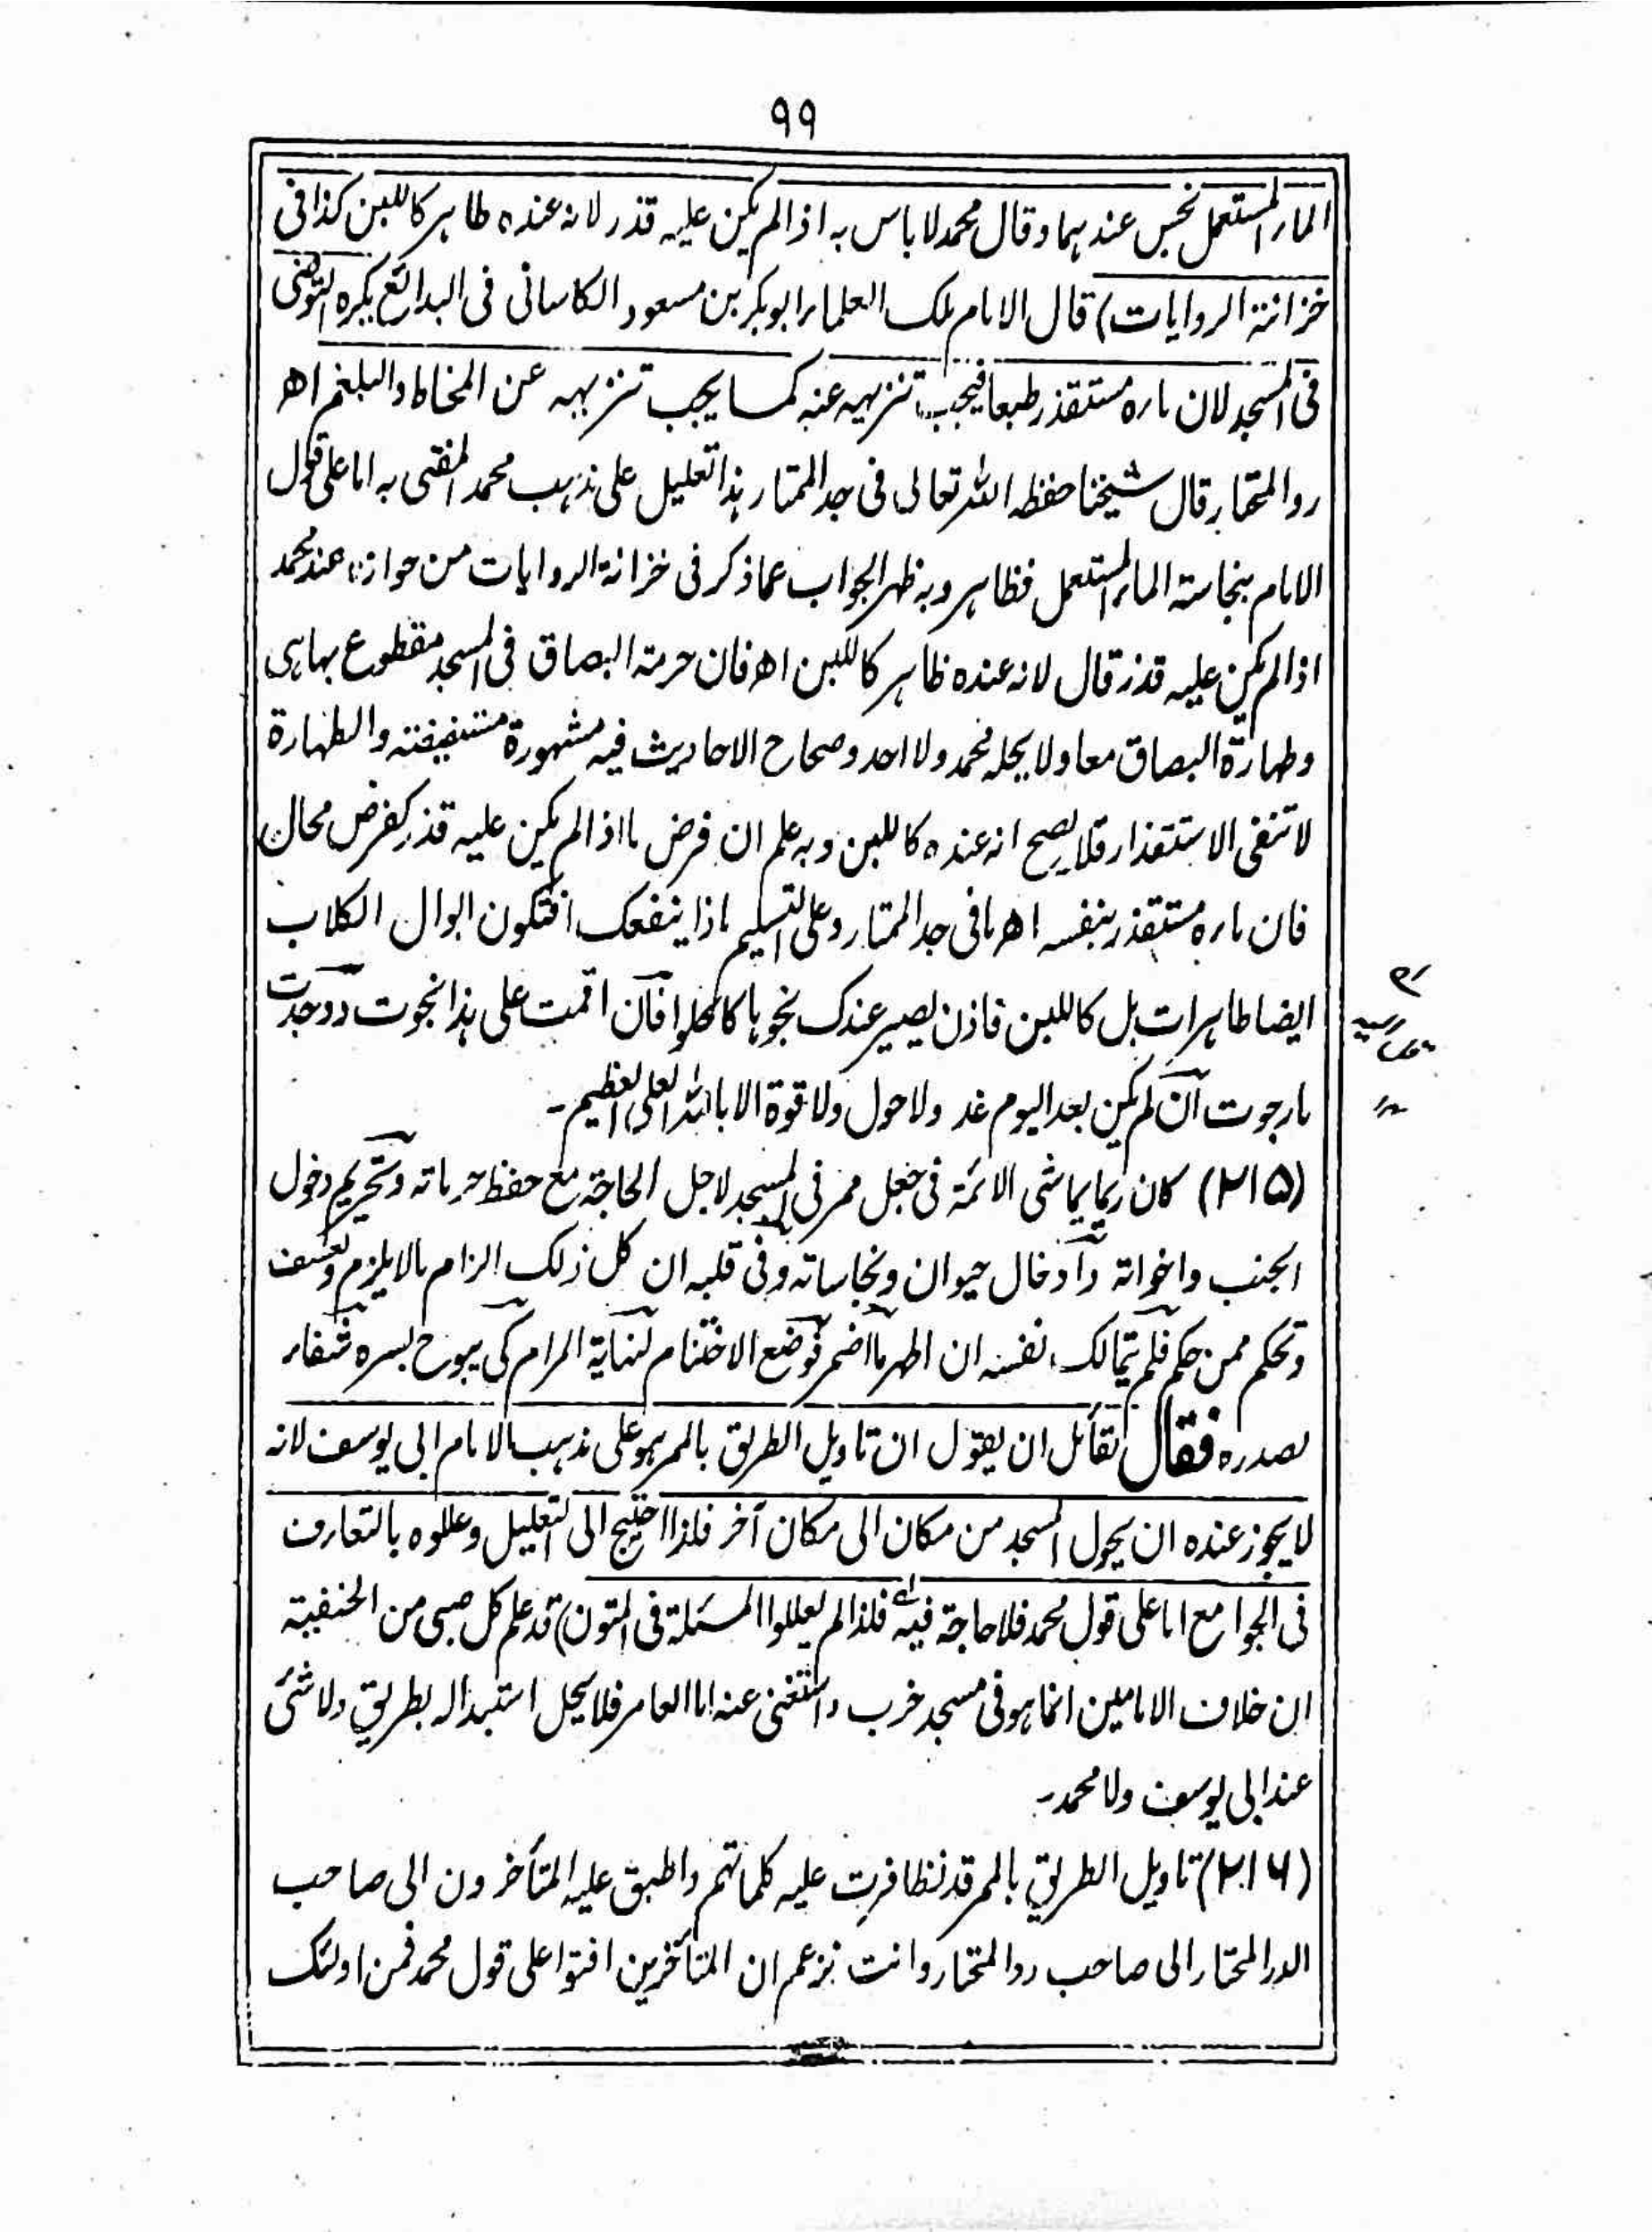 ٩٩
الماء المستعمل نجس عندهما وقال محمد لا باس به اذا لم يكن عليه قذر لانه عنده طاهر كاللبن كذا فى
خزانة الروايات) قال الامام ملك العلماء ابو بكر بن مسعود الكاسانى فى البدائع يكره التوضى
فى المسجد لان ماءه مستقذر طبعا فيجب تنزيهه عنه كما يجب تنزيهه عن المخاط والبلغم اھ
رد المحتار قال شيخنا حفظه الله تعالى فى جد الممتار هذا تعليل على مذهب محمد المفتى به اما على قول
الامام بنجاسة الماء المستعمل فظاهر وبه ظهر الجواب عما ذكر فى خزانة الروايات من جوازه عند محمد
اذا لم يكن عليه قذر قال لانه عنده طاهر كاللبن اھ فان حرمة البصاق فى المسجد مقطوع بها هى
وطهارة البصاق معا ولا يحله محمد ولا احد وصحاح الاحاديث فيه مشهورة مستفيضة والطهارة
لا تنفى الاستقذار فلا يصح انه عنده كاللبن وبه علم ان فرض ما اذا لم يكن عليه قذر كفرض محال
فان ماءه مستقذر بنفسه اھ ما فى جد الممتار وعلى التسليم ماذا ينفعك افتكون ابوال الكلاب
ايضا طاهرات بل كاللبن فاذن يصير عندك نجوها كالحلوا فان اقمت على هذا نجوت ووجدت
ما رجوت ان لم يكن بعد اليوم غد ولا حول ولا قوة الا بالله العلى العظيم۔
(٢١٥) كان ربما يماشى الائمة فى جعل ممر فى المسجد لاجل الحاجة مع حفظ حرماته وتحريم دخول
الجنب واخواته وادخال حيوان ونجاساته وفى قلبه ان كل ذلك الزام ما لا يلزم وتعسف
وتحكم ممن حكم فلم يتمالك نفسه ان اظهر ما اضمر فوضع الاختتام لنهاية المرام كى يبوح بسره شفاء
لصدره فقال لقائل ان يقول ان تاويل الطريق بالممر هو على مذهب الامام ابى يوسف لانه
لا يجوز عنده ان يحول المسجد من مكان الى مكان آخر فلذا احتيج الى التعليل وعللوه بالتعارف
فى الجوامع اما على قول محمد فلا حاجة فيه فلذا لم يعللوا المسئلة فى المتون) قد علم كل صبى من الحنفية
ان خلاف الامامين انما هو فى مسجد خرب واستغنى عنه اما العامر فلا يحل استبداله بطريق ولا شئ
عند ابى يوسف ولا محمد۔
(٢١٦) تاويل الطريق بالممر قد تظافرت عليه كلماتهم واطبق عليه المتأخرون الى صاحب
الدر المختار الى صاحب رد المحتار وانت تزعم ان المتأخرين افتوا على قول محمد فمن اولئك